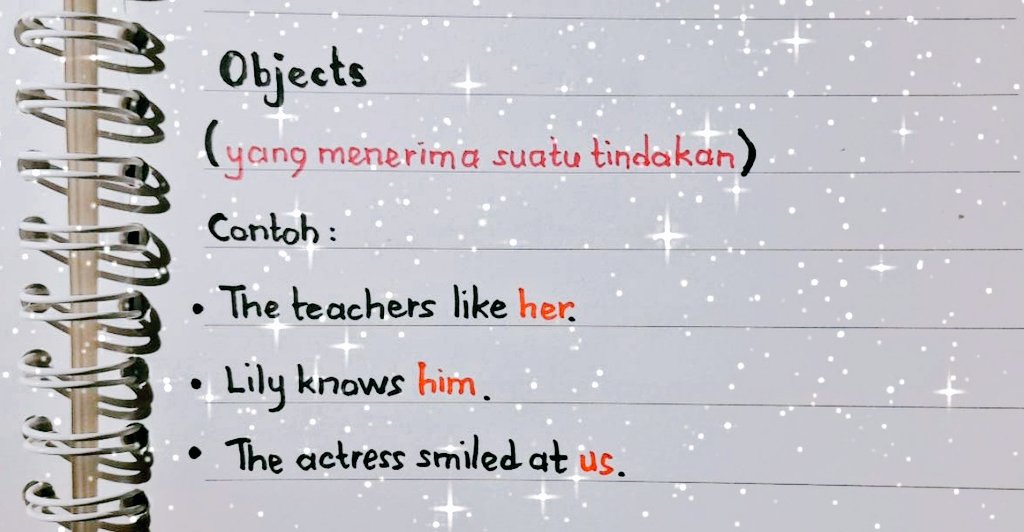 Objects
(yang menerima suatu tindakan)
Contoh :
• The teachers like her.
• Lily knows him.
• The actress smiled at us.